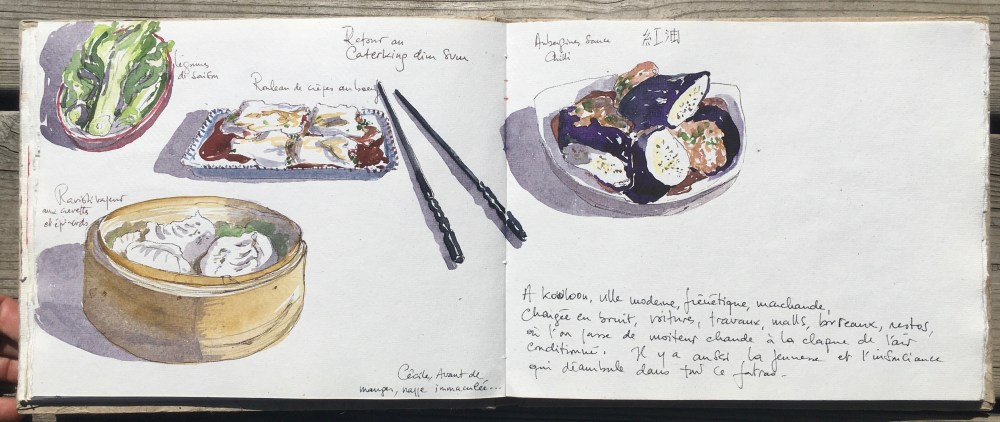 Retour au
Caterking dim Sum
légumes
de saison
Rouleau de crêpes au boeuf
Ravioli vapeur
aux crevettes
et épinards
Cécile, Avant de
manger, nappe immaculée...
Aubergines Sauce
Chili
紅油
A Kowloon, ville moderne, frénétique, marchande,
chargée en bruit, voiture, travaux, malls, bureaux, restos,
où l'on passe de moiteur chaude à la claque de l'air
conditionné. Il y a aussi la jeunesse et l'insouciance
qui déambule dans tout ce fatras.